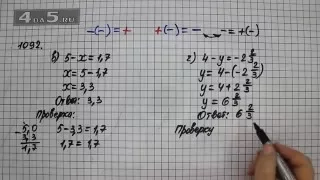 4АБ5.РУ
-(-) = +  +(-) = -  -=+(-)
1092.
б) 5-x=1,7
x=5-1,7
x=3,3
Ответ: 3,3
Проверка:
5-3,3=1,7
1,7=1,7
5,0
3,3
1,7
г) 4-y=-2 2/3
y=4-(-2 2/3)
y=4+2 2/3
y=6 2/3
Ответ: 6 2/3
Проверка